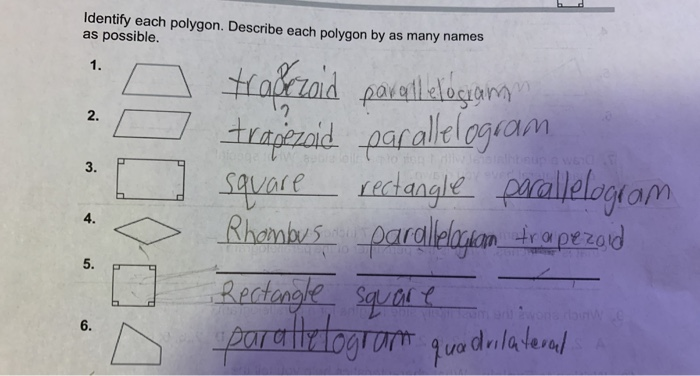 Identify each polygon. Describe each polygon by as many names
as possible.
1. trapezoid parallelogram
2. trapezoid parallelogram
3. square rectangle parallelogram
4. Rhombus parallelogram trapezoid
5. Rectangle square
6. parallelogram quadrilateral